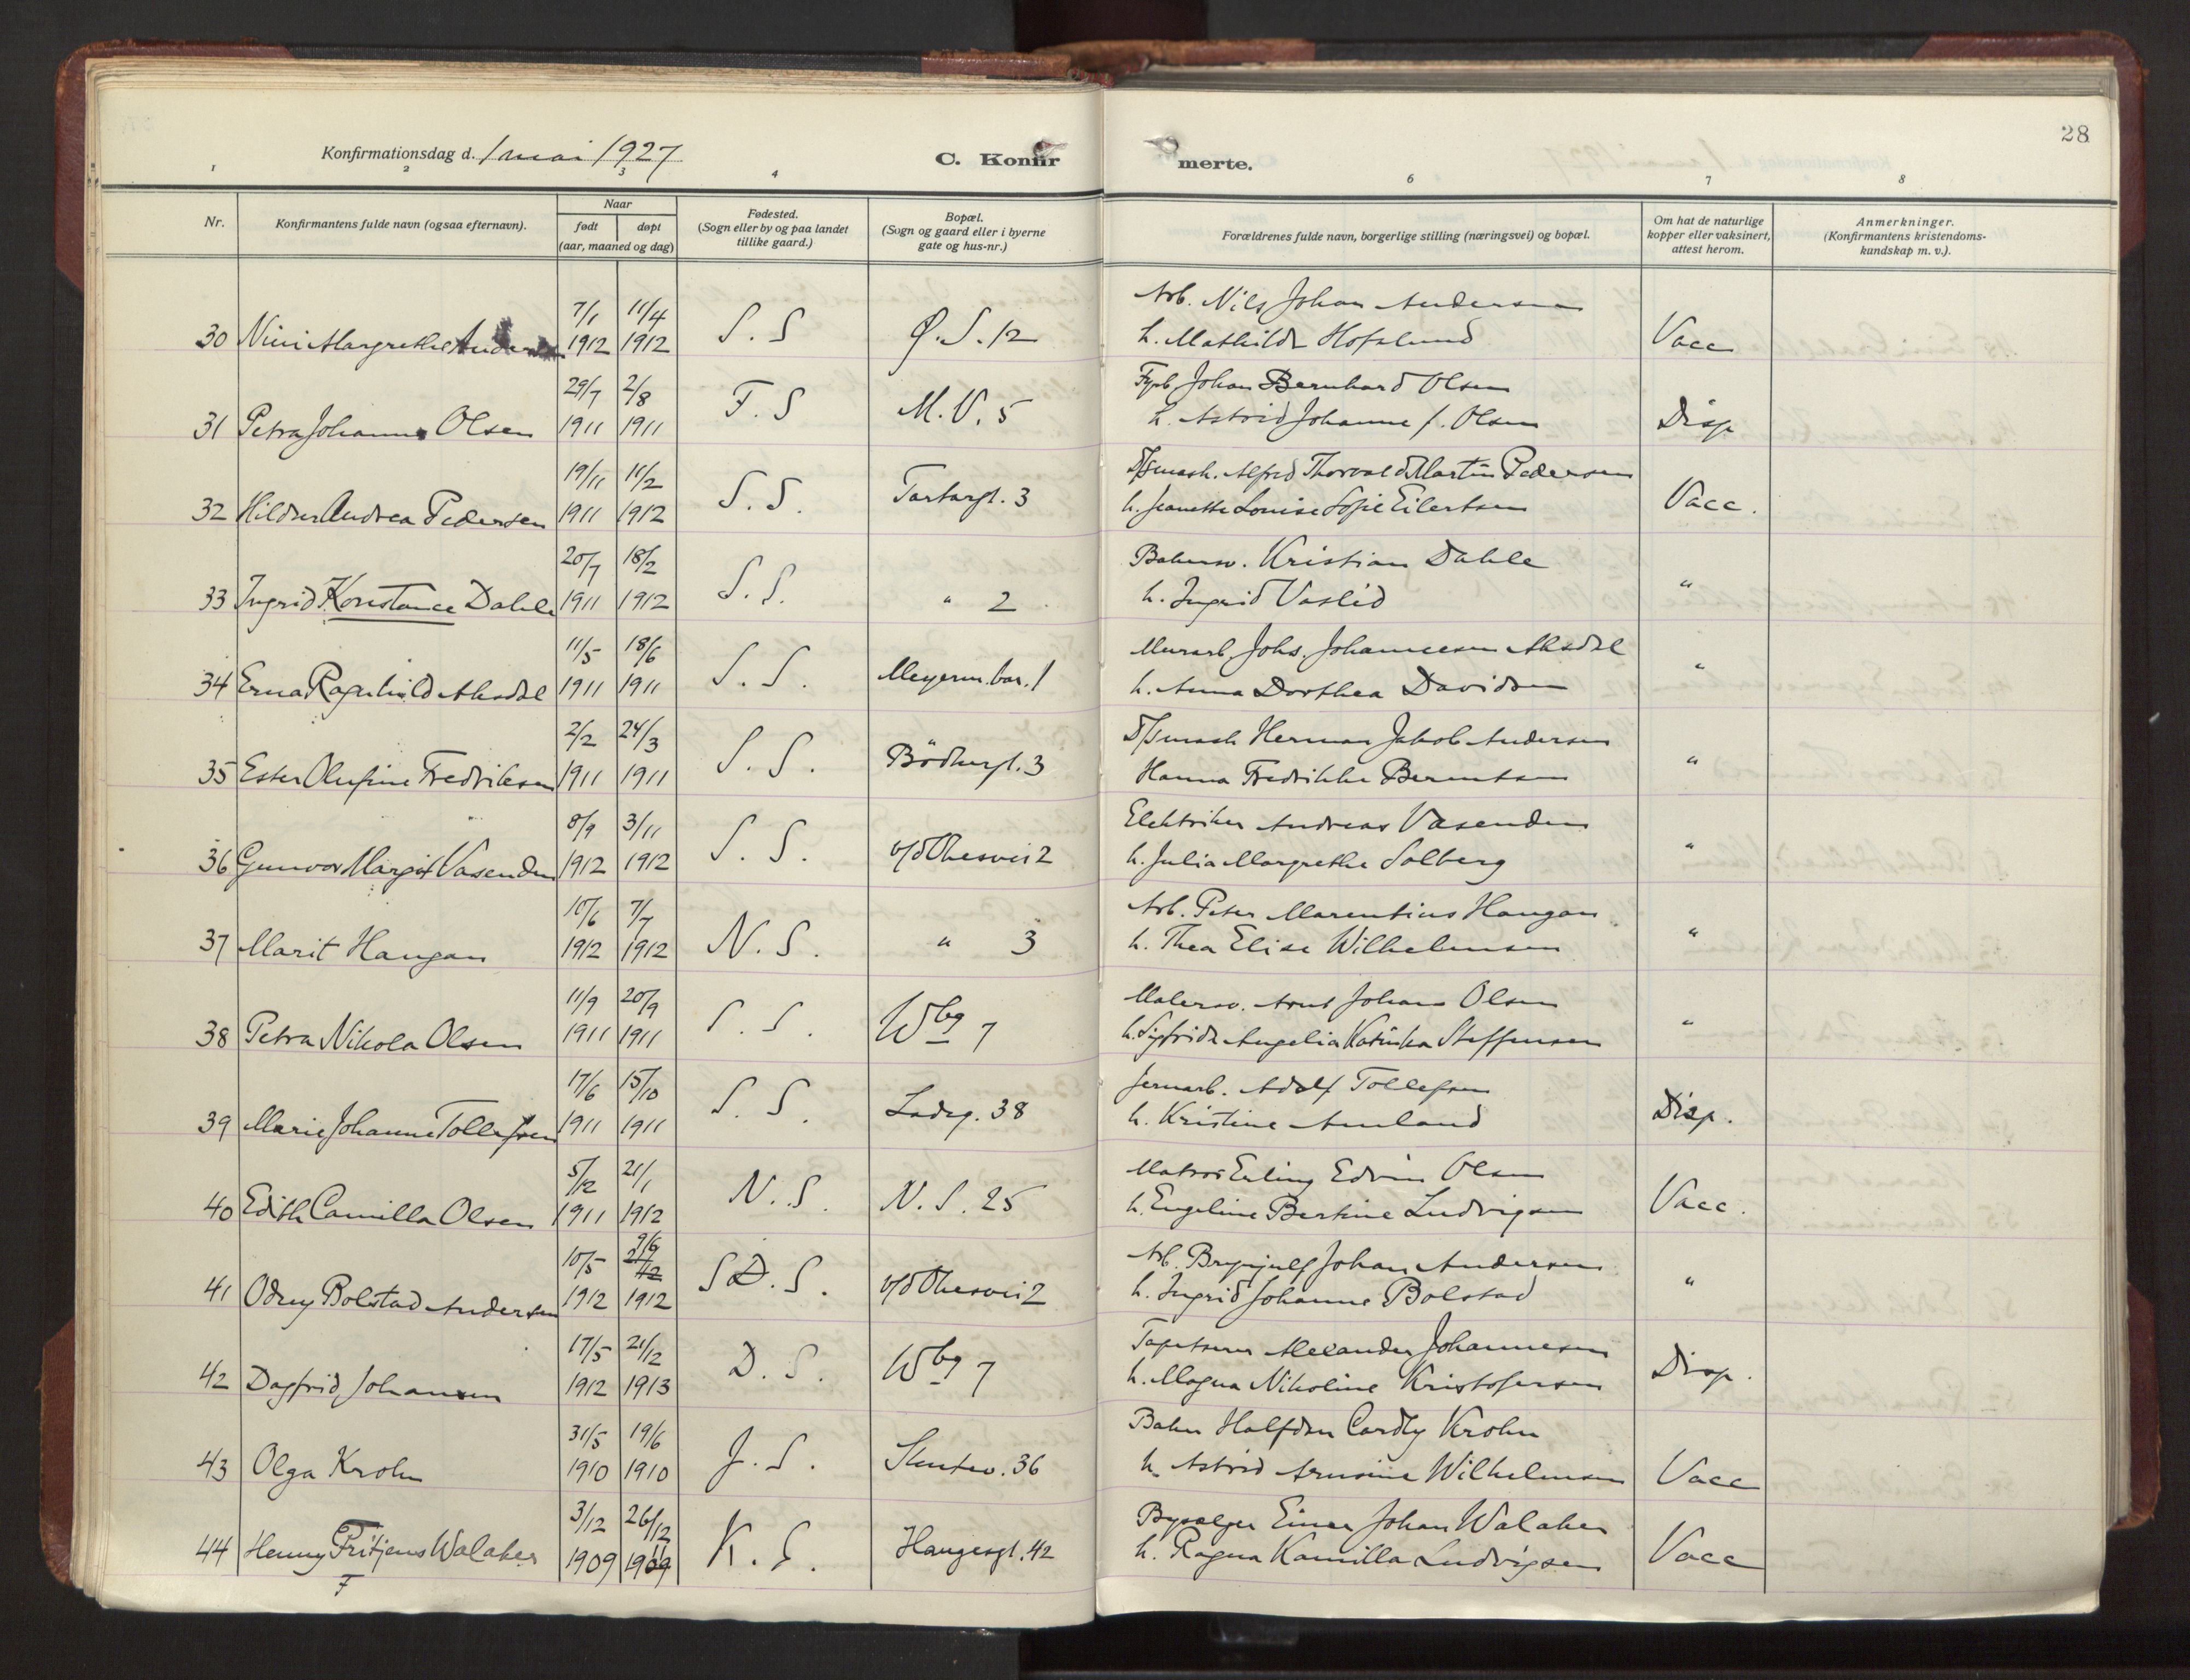 28
Konfirmationsdag d. 1 mai 1927
C. Konfir merte.
1 2 3 4 6 7 8
Nr.
Konfirmantens fulde navn (ogsaa efternavn).
Naar
født døpt
(aar, maaned og dag)
Fødested.
(Sogn eller by og paa landet
tillike gaard.)
Bopæl.
(Sogn og gaard eller i byerne
gate og hus-nr.)
Forældrenes fulde navn, borgerlige stilling (næringsvei) og bopæl.
Om hat de naturlige
kopper eller vaksinert,
attest herom.
Anmerkninger.
(Konfirmantens kristendoms-
kundskap m. v.).
7/1 11/4 Arb. Nils Johan Andersen
30 Nini Margrethe Andersen 1912 1912 S. S Ø. S. 12 h. Mathilde Hofslund Vacc
29/7 2/8 Johan Bernhard Olsen
31 Petra Johanne Olsen 1911 1911 F. S M. V. 5 h. Astrid Johanne f. Olsen Disp
19/11 11/2 D/Smask. Alfred Thorvald Martin Pedersen
32 Hildur Andrea Pedersen 1911 1912 S. S. Tartargt. 3 h. Jeanette Louise Sofie Eilertsen Vacc.
20/7 18/2 Bakersv. Kristian Dahle
33 Ingrid Konstance Dahle 1911 1912 S. S. " 2 h. Ingrid Vaslid "
11/5 18/6 Murarb. Johs. Johannesen Aksdal
34 Erna Ragnhild Aksdal 1911 1911 S. S. Meyerm.bar. 1 h. Anna Dorthea Davidsen "
2/2 24/3 D/Smask Herman Jakob Andersen
35 Ester Olufine Fredriksen 1911 1911 S. S. Bödkergt. 3 Hanna Fredrikke Berentsen "
8/9 3/11 Elektriker Andreas Vasenden
36 Gunvor Margit Vasenden 1912 1912 S. S. v/d Ohesvei 2 h. Julia Margrethe Solberg "
10/6 7/7 Arb. Peter Marentius Haugan
37 Marit Haugan 1912 1912 N. S. " 3 h. Thea Elise Wilhelmsen "
11/9 20/9 Malersv. Arnt Johan Olsen
38 Petra Nikola Olsen 1911 1911 S. S. Wbg 7 h. Sigfrida Angelia Katinka Steffensen "
17/6 15/10 Jernarb. Adolf Tollefsen
39 Marie Johanne Tollefsen 1911 1911 S. S. Ladeg. 38 h. Kristine Amland Disp.
5/12 21/1 Matros Erling Edvin Olsen
40 Edith Camilla Olsen 1911 1912 N. S. N. S. 25 h. Engeline Bertine Ludvigsen Vacc.
10/5 9/6 Arb. Brynjulf Johan Andersen
41 Odny Bolstad Andersen 1912 1912 S D. S. v/d Ohesvei 2 h. Ingrid Johanne Bolstad "
17/5 21/12 Tapetserer Alexander Johannesen
42 Dagfrid Johansen 1912 1913 D. S. Wbg 7 h. Magna Nikoline Kristofersen Disp.
31/5 19/6 Baker Halfdan Cardly Krohn
43 Olga Krohn 1910 1910 J. S. Skutev. 36 h. Astrid Arnsine Wilhelmsen Vacc
3/12 26/12 Bysælger Einar Johan Walaker
44 Henny Fritjens Walaker 1909 1909 K. S. Haugesgt. 42 h. Ragna Kamilla Ludvigsen Vacc
F